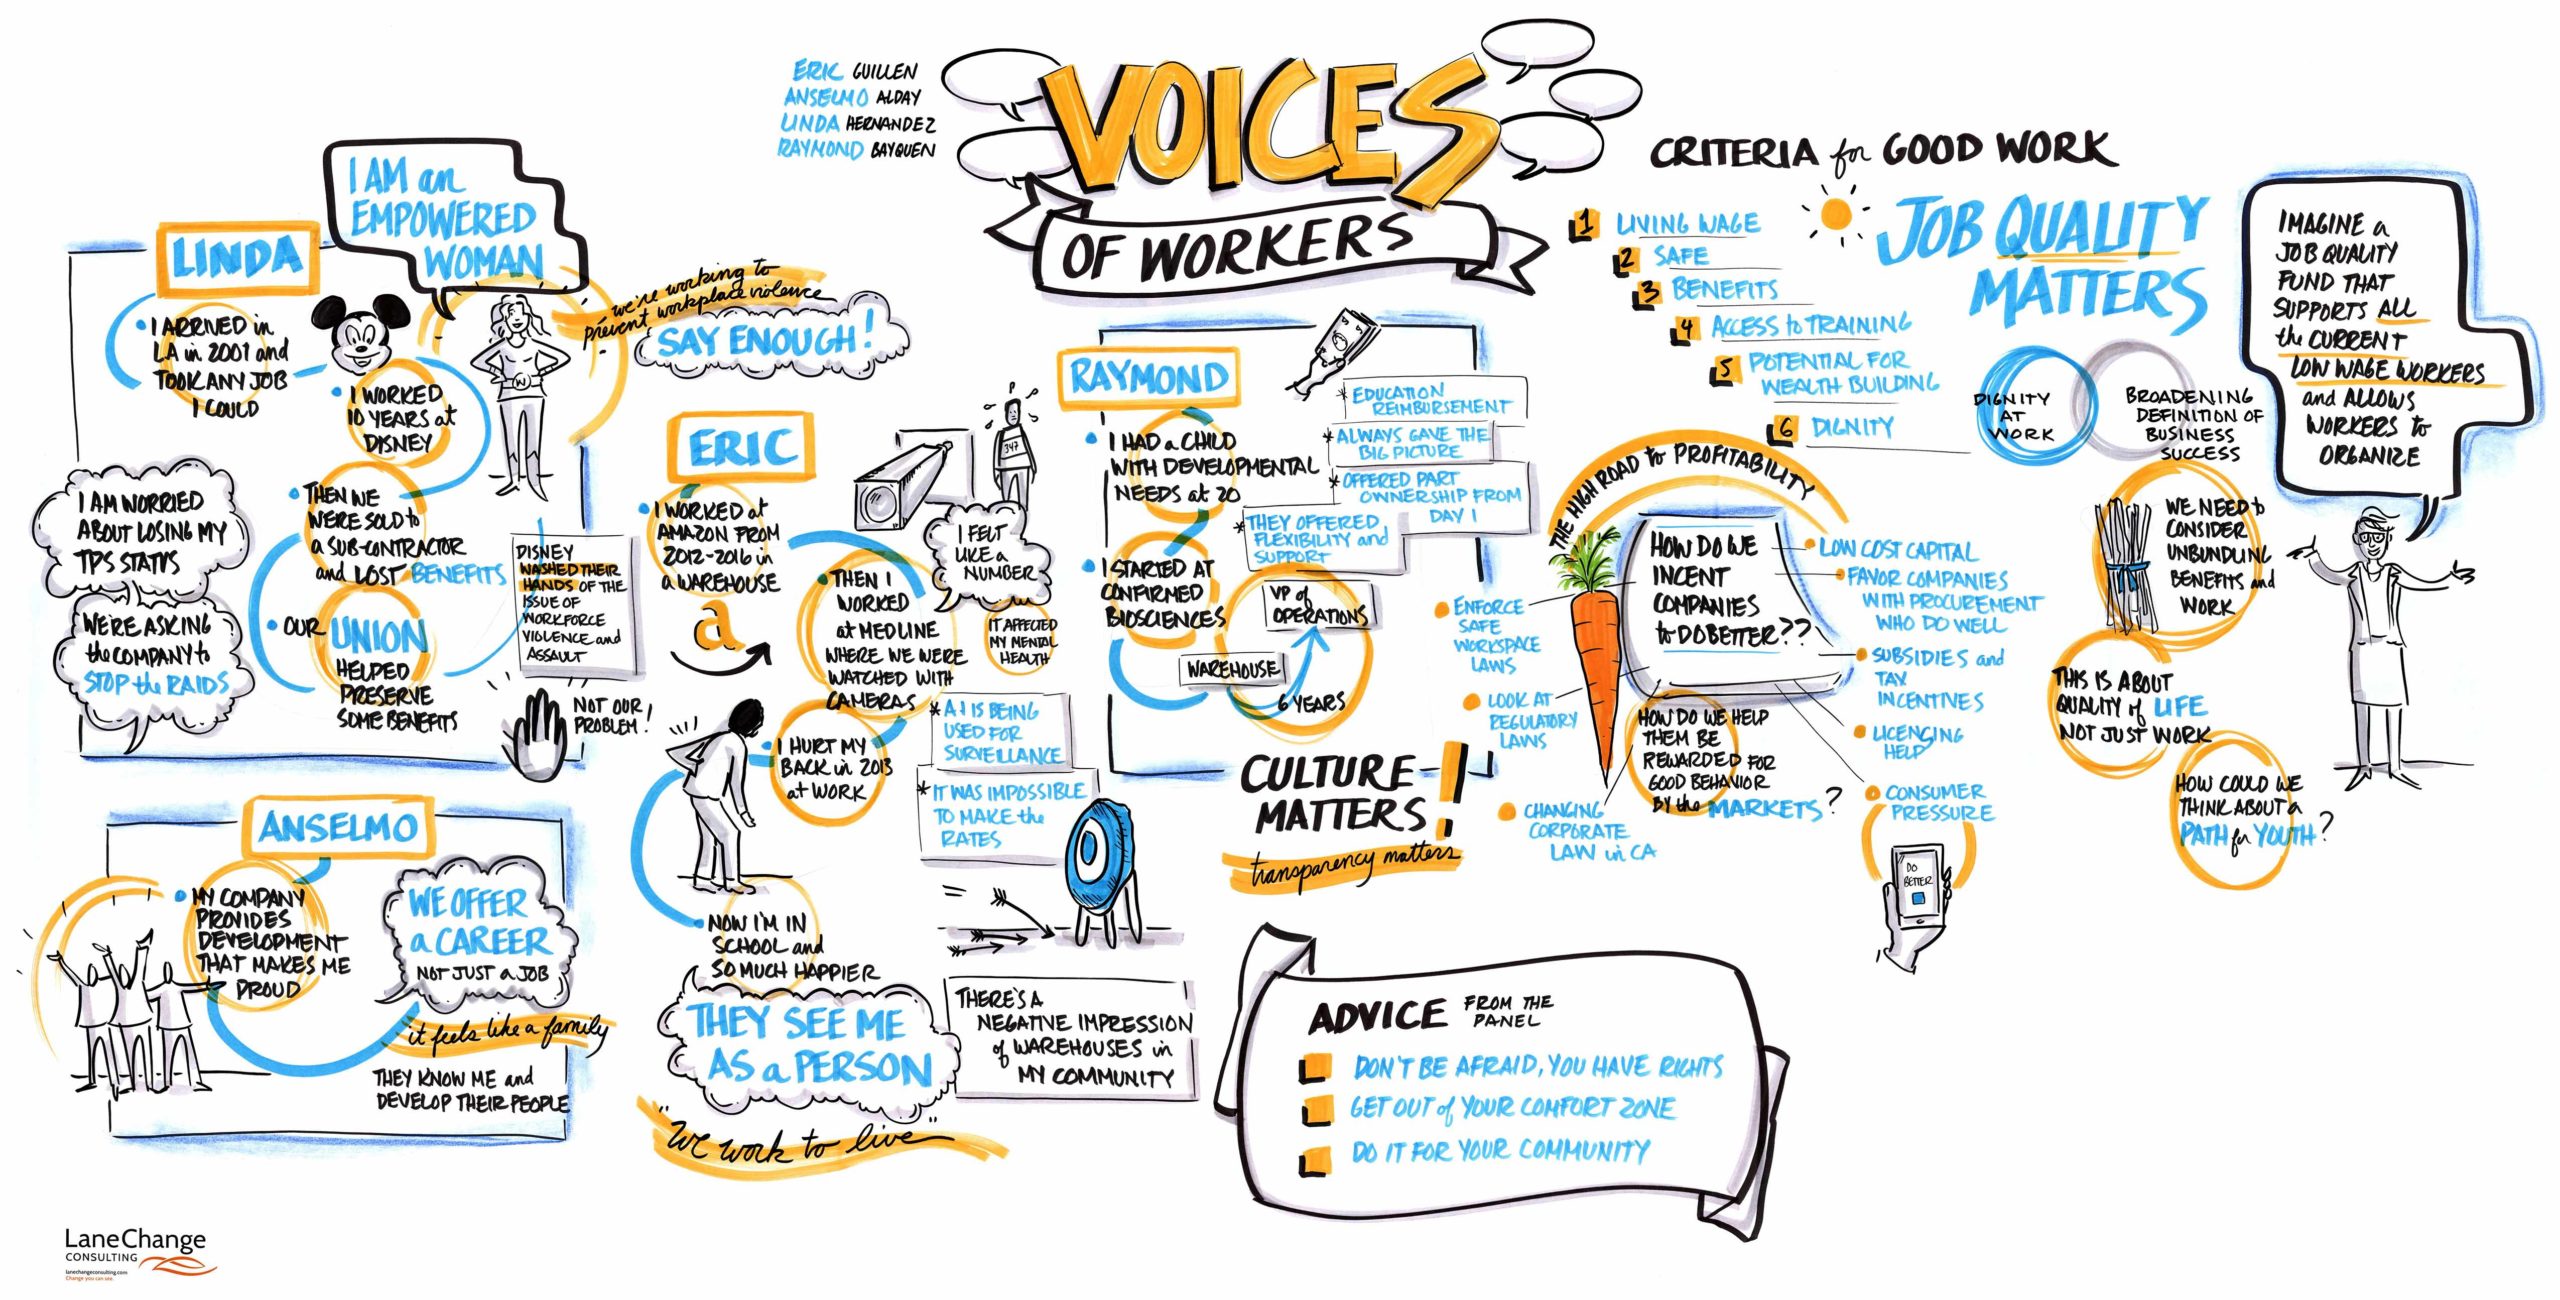 ERIC GUILLEN
ANSELMO ALDAY
LINDA HERNANDEZ
RAYMOND BAYQUEN
VOICES
OF WORKERS
LINDA
I AM an
EMPOWERED
WOMAN
I ARRIVED in
LA in 2001 and
TOOK ANY JOB
I COULD
I WORKED
10 YEARS at
DISNEY
W
we're working to
prevent workplace violence
SAY ENOUGH!
THEN WE
WERE SOLD to
a SUB-CONTRACTOR
and LOST BENEFITS
I AM WORRIED
ABOUT LOSING MY
TPS STATUS
WE'RE ASKING
the COMPANY to
STOP the RAIDS
OUR UNION
HELPED
PRESERVE
SOME BENEFITS
DISNEY
WASHED THEIR
HANDS OF THE
ISSUE OF
WORKFORCE
VIOLENCE and
ASSAULT
NOT OUR
PROBLEM!
ANSELMO
MY COMPANY
PROVIDES
DEVELOPMENT
THAT MAKES ME
PROUD
WE OFFER
a CAREER
NOT JUST a JOB
it feels like a family
THEY KNOW ME and
DEVELOP THEIR PEOPLE
ERIC
I WORKED at
AMAZON FROM
2012-2016 in
a WAREHOUSE
a
347
I FELT
LIKE a
NUMBER
IT AFFECTED
MY MENTAL
HEALTH
THEN I
WORKED
at MEDLINE
WHERE WE WERE
WATCHED WITH
CAMERAS
* A.I IS BEING
USED FOR
SURVEILLANCE
* IT WAS IMPOSSIBLE
TO MAKE the
RATES
I HURT MY
BACK in 2013
at WORK
NOW I'M IN
SCHOOL and
SO MUCH HAPPIER
THEY SEE ME
AS a PERSON
"WE work to live"
THERE'S A
NEGATIVE IMPRESSION
of WAREHOUSES in
MY COMMUNITY
RAYMOND
I HAD a CHILD
WITH DEVELOPMENTAL
NEEDS at 20
I STARTED AT
CONFIRMED
BIOSCIENCES
* EDUCATION
REIMBURSEMENT
* ALWAYS GAVE THE
BIG PICTURE
* OFFERED PART
OWNERSHIP FROM
DAY 1
* THEY OFFERED
FLEXIBILITY and
SUPPORT
VP of
OPERATIONS
WAREHOUSE
6 YEARS
CULTURE
MATTERS!
transparency matters
CRITERIA for GOOD WORK
1 LIVING WAGE
2 SAFE
3 BENEFITS
4 ACCESS to TRAINING
5 POTENTIAL FOR
WEALTH BUILDING
6 DIGNITY
JOB QUALITY
MATTERS
DIGNITY
AT
WORK
BROADENING
DEFINITION OF
BUSINESS
SUCCESS
THE HIGH ROAD to PROFITABILITY
HOW DO WE
INCENT
COMPANIES
to DO BETTER??
LOW COST CAPITAL
FAVOR COMPANIES
WITH PROCUREMENT
WHO DO WELL
SUBSIDIES and
TAX
INCENTIVES
LICENCING
HELP
CONSUMER
PRESSURE
DO
BETTER
ENFORCE
SAFE
WORKSPACE
LAWS
LOOK AT
REGULATORY
LAWS
CHANGING
CORPORATE
LAW in CA
HOW DO WE HELP
THEM BE
REWARDED FOR
GOOD BEHAVIOR
BY the MARKETS?
WE NEED to
CONSIDER
UNBUNDLING
BENEFITS and
WORK
THIS IS ABOUT
QUALITY of LIFE
NOT JUST WORK
HOW COULD WE
THINK ABOUT a
PATH for YOUTH?
IMAGINE a
JOB QUALITY
FUND THAT
SUPPORTS ALL
the CURRENT
LOW WAGE WORKERS
and ALLOWS
WORKERS to
ORGANIZE
ADVICE FROM THE
PANEL
DON'T BE AFRAID, YOU HAVE RIGHTS
GET OUT of YOUR COMFORT ZONE
DO IT FOR YOUR COMMUNITY
LaneChange
CONSULTING
lanechangeconsulting.com
Change you can see.